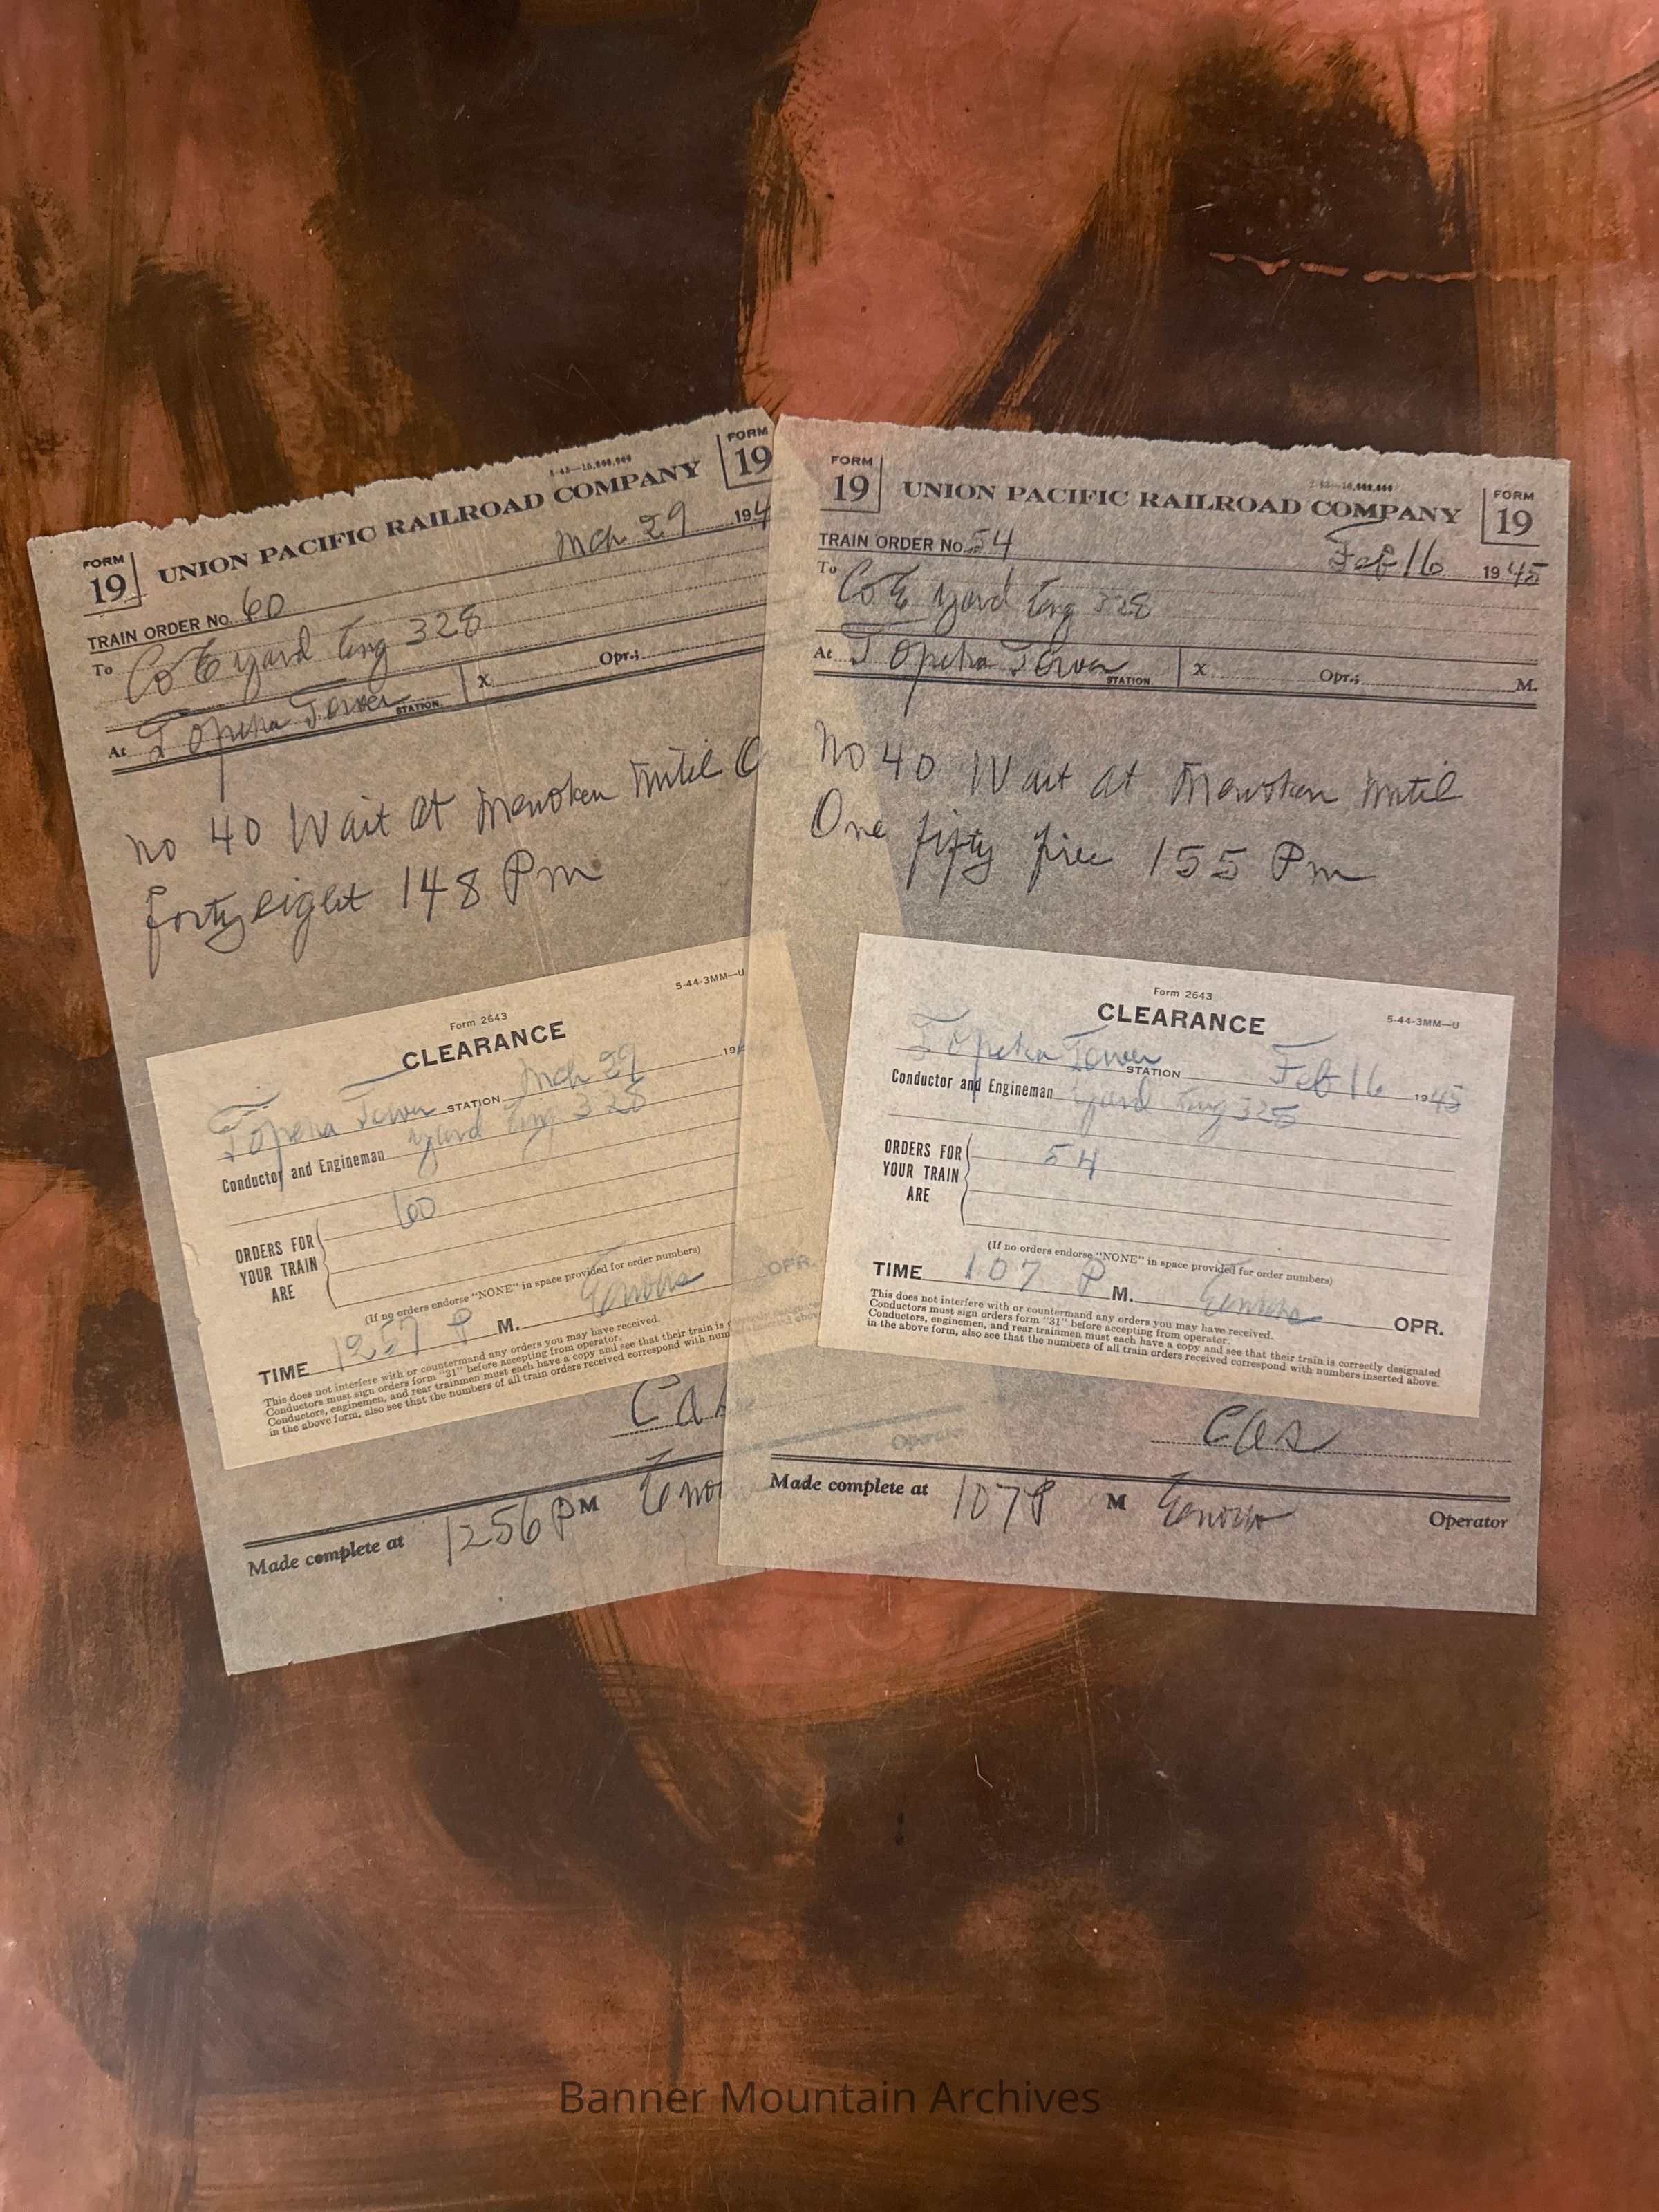 FORM
19
UNION PACIFIC RAILROAD COMPANY
FORM
19
Mch 29 194
TRAIN ORDER No. 60
To C&E yard Eng 328
At Topeka Tower STATION. X Opr.;
No 40 Wait at Menoken until O
forty eight 148 Pm
Form 2643
5-44-3MM—U
CLEARANCE
Topeka Tower STATION Mch 29 19
Conductor and Engineman yard Eng 328
ORDERS FOR
YOUR TRAIN
ARE
60
(If no orders endorse "NONE" in space provided for order numbers)
TIME 1257 P M. OPR.
This does not interfere with or countermand any orders you may have received.
Conductors must sign orders form "31" before accepting from operator.
Conductors, enginemen, and rear trainmen must each have a copy and see that their train is
in the above form, also see that the numbers of all train orders received correspond with num
Made complete at 1256 P M
FORM
19
UNION PACIFIC RAILROAD COMPANY
FORM
19
TRAIN ORDER No. 54 Feb 16 1945
To C&E yard Eng 328
At Topeka Tower STATION. X Opr.; M.
No 40 Wait at Menoken until
One fifty five 155 Pm
Form 2643
CLEARANCE
5-44-3MM—U
Topeka Tower STATION Feb 16 1945
Conductor and Engineman yard Eng 328
ORDERS FOR
YOUR TRAIN
ARE
54
(If no orders endorse "NONE" in space provided for order numbers)
TIME 107 P M. OPR.
This does not interfere with or countermand any orders you may have received.
Conductors must sign orders form "31" before accepting from operator.
Conductors, enginemen, and rear trainmen must each have a copy and see that their train is correctly designated
in the above form, also see that the numbers of all train orders received correspond with numbers inserted above.
Made complete at 107 P M Operator
Banner Mountain Archives